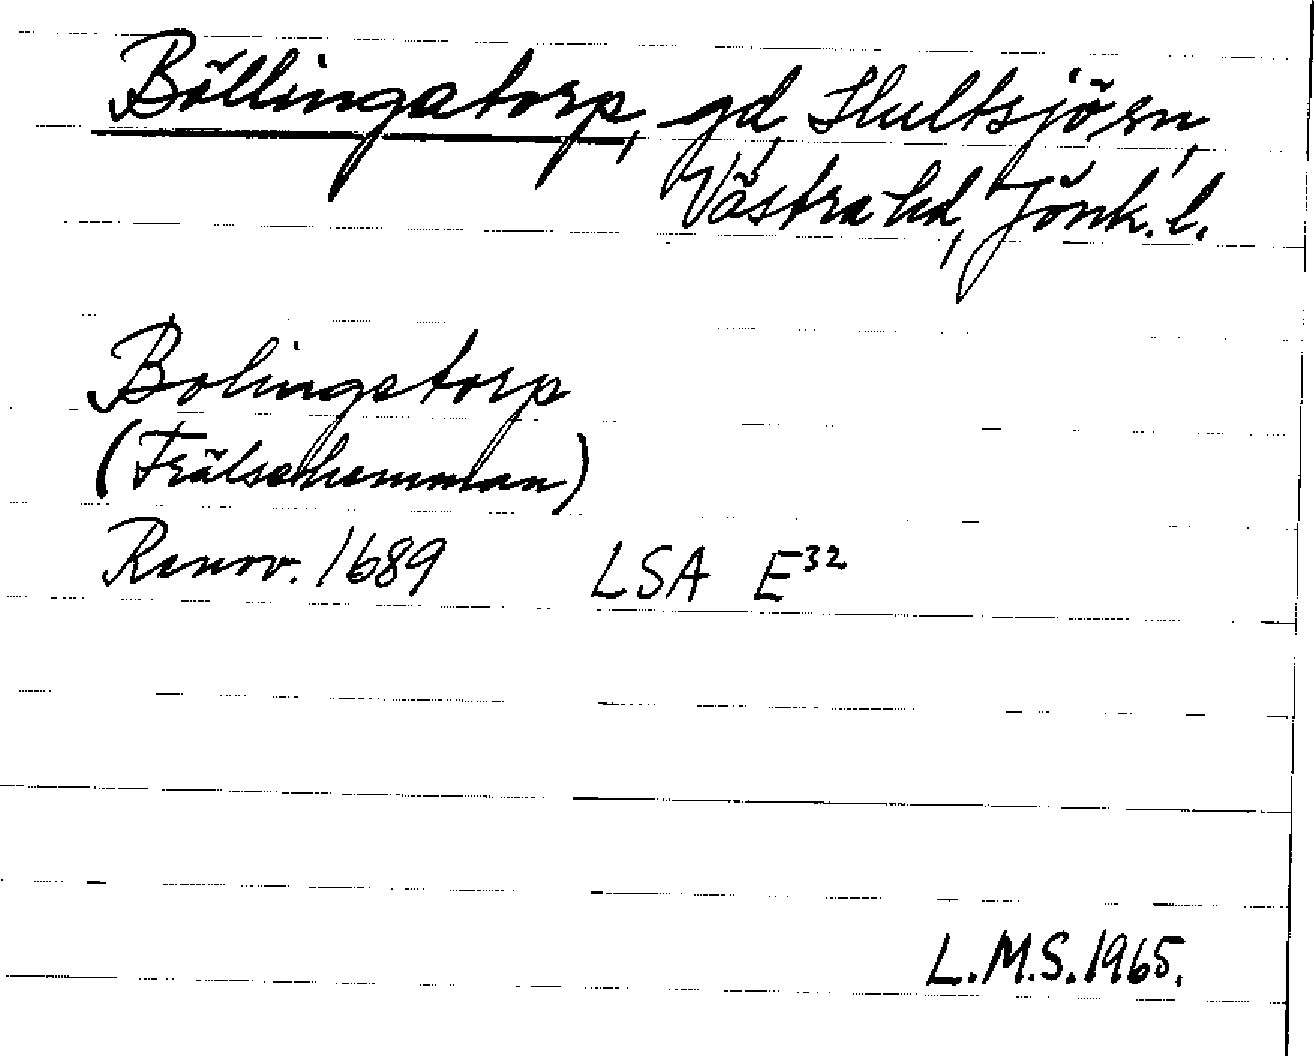 Böllingatorp, gd, Hultsjö sn,
Västra hd, Jönk. l.
Bolingstorp
(Frälsehemman)
Renov. 1689 LSA E³²
L.M.S. 1965.